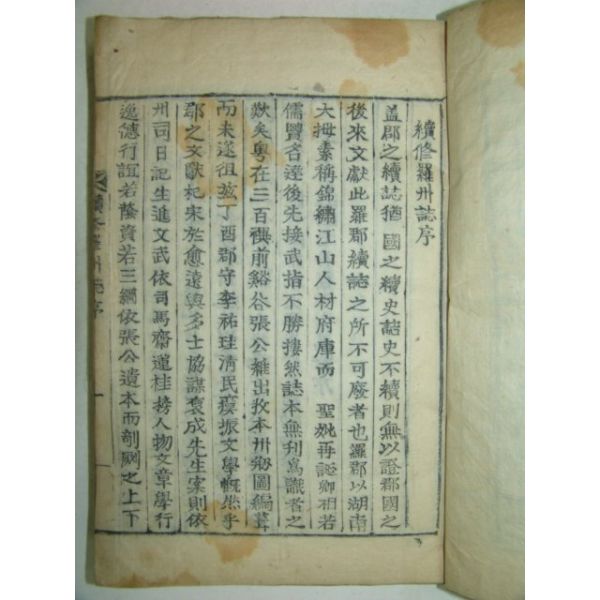 續修羅州誌序
盖郡之續誌猶 國之續史誌史不續則無以證郡國之
後來文獻此羅郡續誌之所不可廢者也羅郡以湖南
大拇素稱錦繡江山人材府庫而 聖 再 卿相若
儒賢 後先接武指不勝摟然誌本無刊爲識者之
歎矣粤在三百 前谿谷張公維出 本州 圖編葺
而未遂徂玆丁酉郡守李祐珪淸民瘼振文學慨然乎
郡之文獻杞宋於愈遠與多士協謀裒成先生案則依
州司日記生進文武依司馬齋蓮桂榜人物文章學行
逸德行誼若蔭資若三綱依張公遺本而剞劂之上下